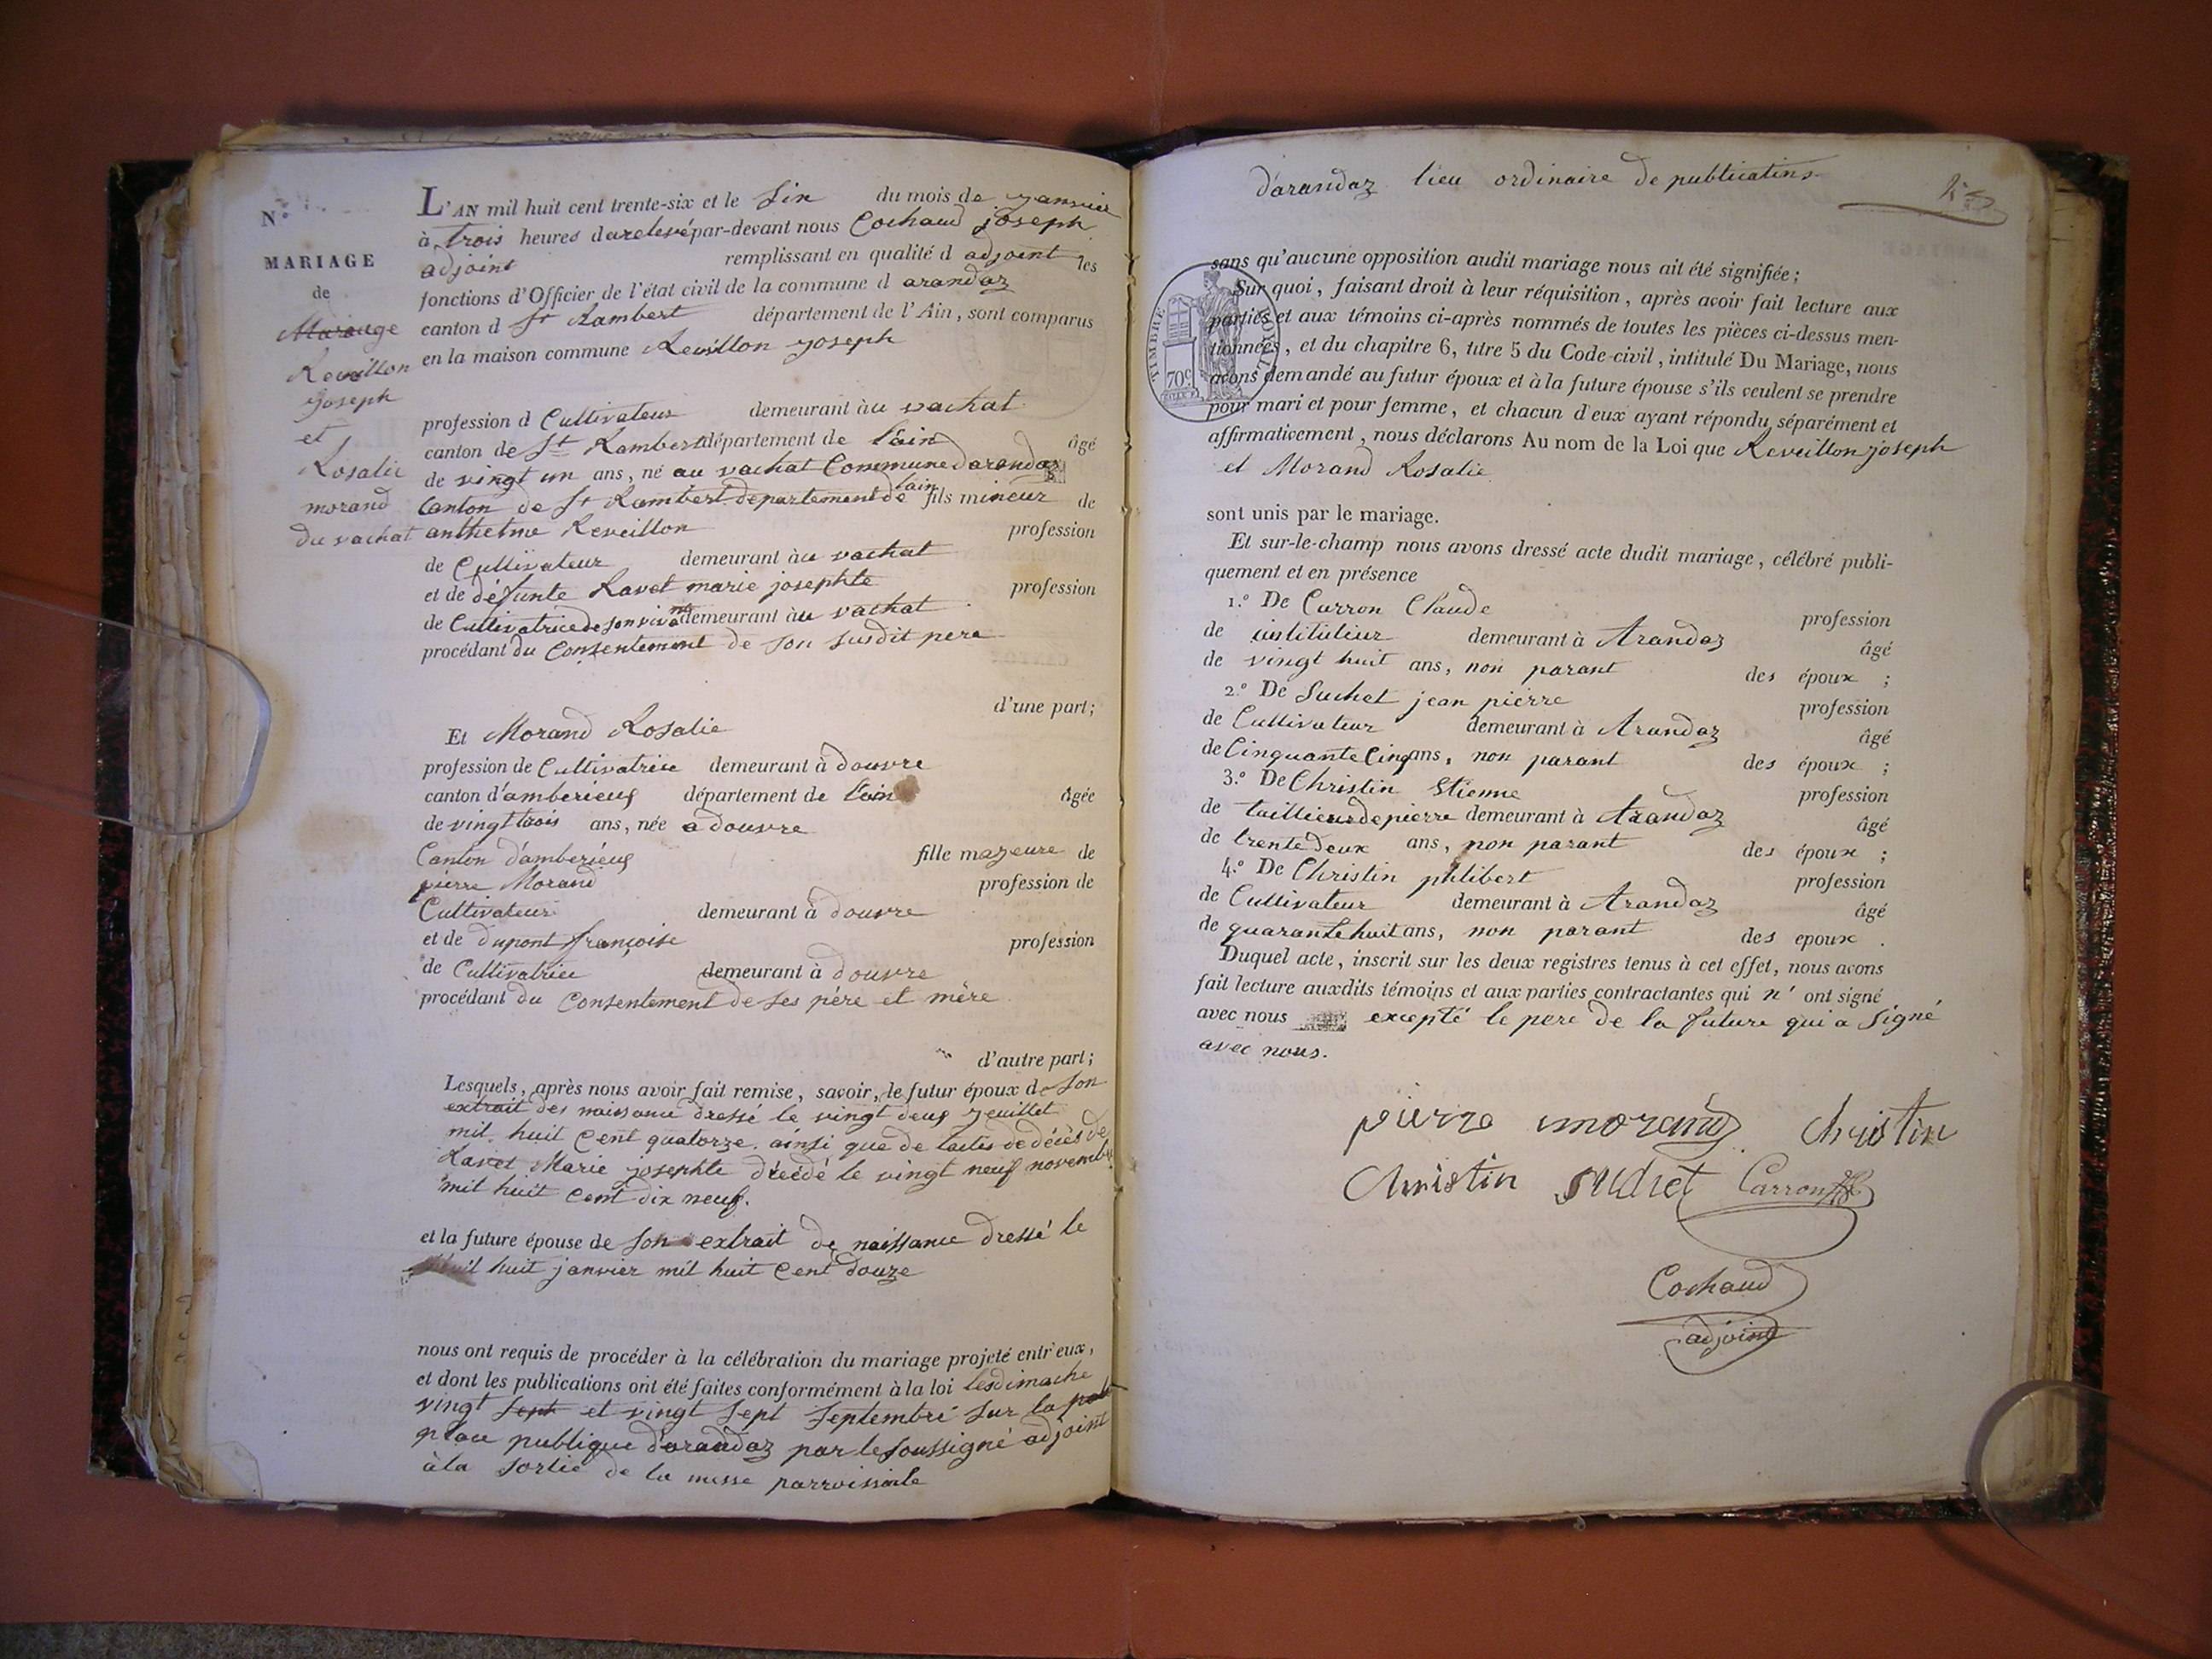 N°
MARIAGE
de
Mariage
Reveillon
joseph
et
Rosalie
morand
du vachat
L'AN mil huit cent trente-six et le six du mois de janvier
à trois heures darelevé par-devant nous Cochaud joseph
adjoint remplissant en qualité d adjoint les
fonctions d'Officier de l'état civil de la commune d arandaz
canton d St Rambert département de l'Ain, sont comparus
en la maison commune Reveillon joseph
profession d Cultivateur demeurant àu vachat
canton de St Rambert département de l'ain âgé
de vingt un ans, né au vachat Commune darandaz
Canton de St Rambert departement de lain fils mineur de
anthelme Reveillon profession
de Cultivateur demeurant àu vachat
et de défunte Ravet marie josephte profession
de Cultivatrice de son vivant demeurant àu vachat
procédant du Consentement de son susdit pere
d'une part;
Et Morand Rosalie
profession de Cultivatrice demeurant à douvre
canton d'amberieux département de l'ain âgée
de vingt trois ans, née a douvre
Canton d'amberieux fille majeure de
pierre Morand profession de
Cultivateur demeurant à douvre
et de dupont françoise profession
de Cultivatrice demeurant à douvre
procédant du Consentement de ses père et mère
d'autre part;
Lesquels, après nous avoir fait remise, savoir, le futur époux de son
extrait des naissance dressé le vingt deux jeuillet
mil huit Cent quatorze ainsi que de lactes de décès de
Ravet Marie josephte décédé le vingt neuf novembre
mil huit Cent dix neuf.
et la future épouse de son extrait de naissance dressé le
huit janvier mil huit Cent douze
nous ont requis de procéder à la célébration du mariage projeté entr'eux,
et dont les publications ont été faites conformément à la loi les dimache
vingt sept et vingt sept septembre sur la
place publique d'arandaz par le soussigné adjoint
à la sortie de la messe parroissiale
d'arandaz lieu ordinaire de publicatins
sans qu'aucune opposition audit mariage nous ait été signifiée;
Sur quoi, faisant droit à leur réquisition, après avoir fait lecture aux
parties et aux témoins ci-après nommés de toutes les pièces ci-dessus men-
tionnées, et du chapitre 6, titre 5 du Code civil, intitulé Du Mariage, nous
avons demandé au futur époux et à la future épouse s'ils veulent se prendre
pour mari et pour femme, et chacun d'eux ayant répondu séparément et
affirmativement, nous déclarons Au nom de la Loi que Reveillon joseph
et Morand Rosalie
TIMBRE ROYAL
70c
sont unis par le mariage.
Et sur-le-champ nous avons dressé acte dudit mariage, célébré publi-
quement et en présence
1.° De Carron Claude profession
de instituteur demeurant à Arandaz âgé
de vingt huit ans, non parant des époux ;
2.° De Suchet jean pierre profession
de Cultivateur demeurant à Arandaz âgé
de Cinquante Cinq ans, non parant des époux ;
3.° De Christin Etienne profession
de taillieur de pierre demeurant à Arandaz âgé
de trente deux ans, non parant des époux ;
4.° De Christin philibert profession
de Cultivateur demeurant à Arandaz âgé
de quarante huit ans, non parant des epoux .
Duquel acte, inscrit sur les deux registres tenus à cet effet, nous avons
fait lecture auxdits témoins et aux parties contractantes qui n' ont signé
avec nous excepté le pere de la future qui a signé
avec nous.
pierre morand Christin
Christin suchet Carron
Cochaud
adjoint